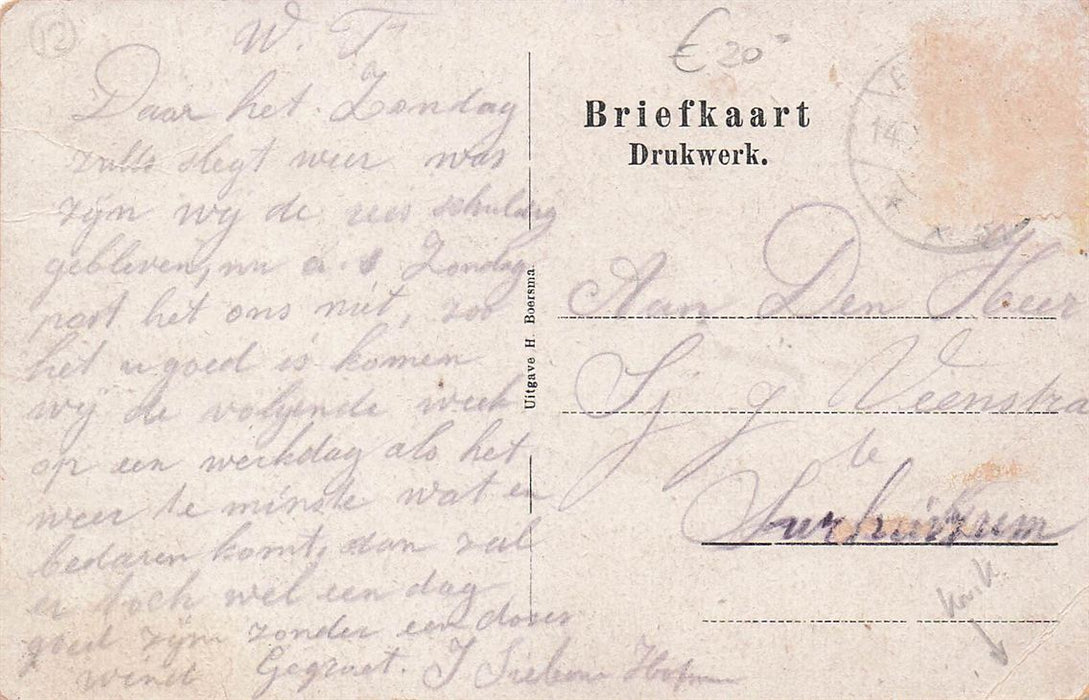 12
W. F.
Daar het Zondag
zulk slegt weer was
zijn wij de reis schuldig
gebleven, nu a.s Zondag
past het ons niet, zoo
het u goed is komen
wij de volgende week
op een weekdag als het
weer te minste wat en
bedaren komt, dan zal
er toch wel een dag
goed zijn zonder een dooi
wint Gegroet. J
Uitgave H. Boersma.
€ 20
Briefkaart
Drukwerk.
14
Aan Den Heer
Sj g Veenstra
te
Surhuizum
knik